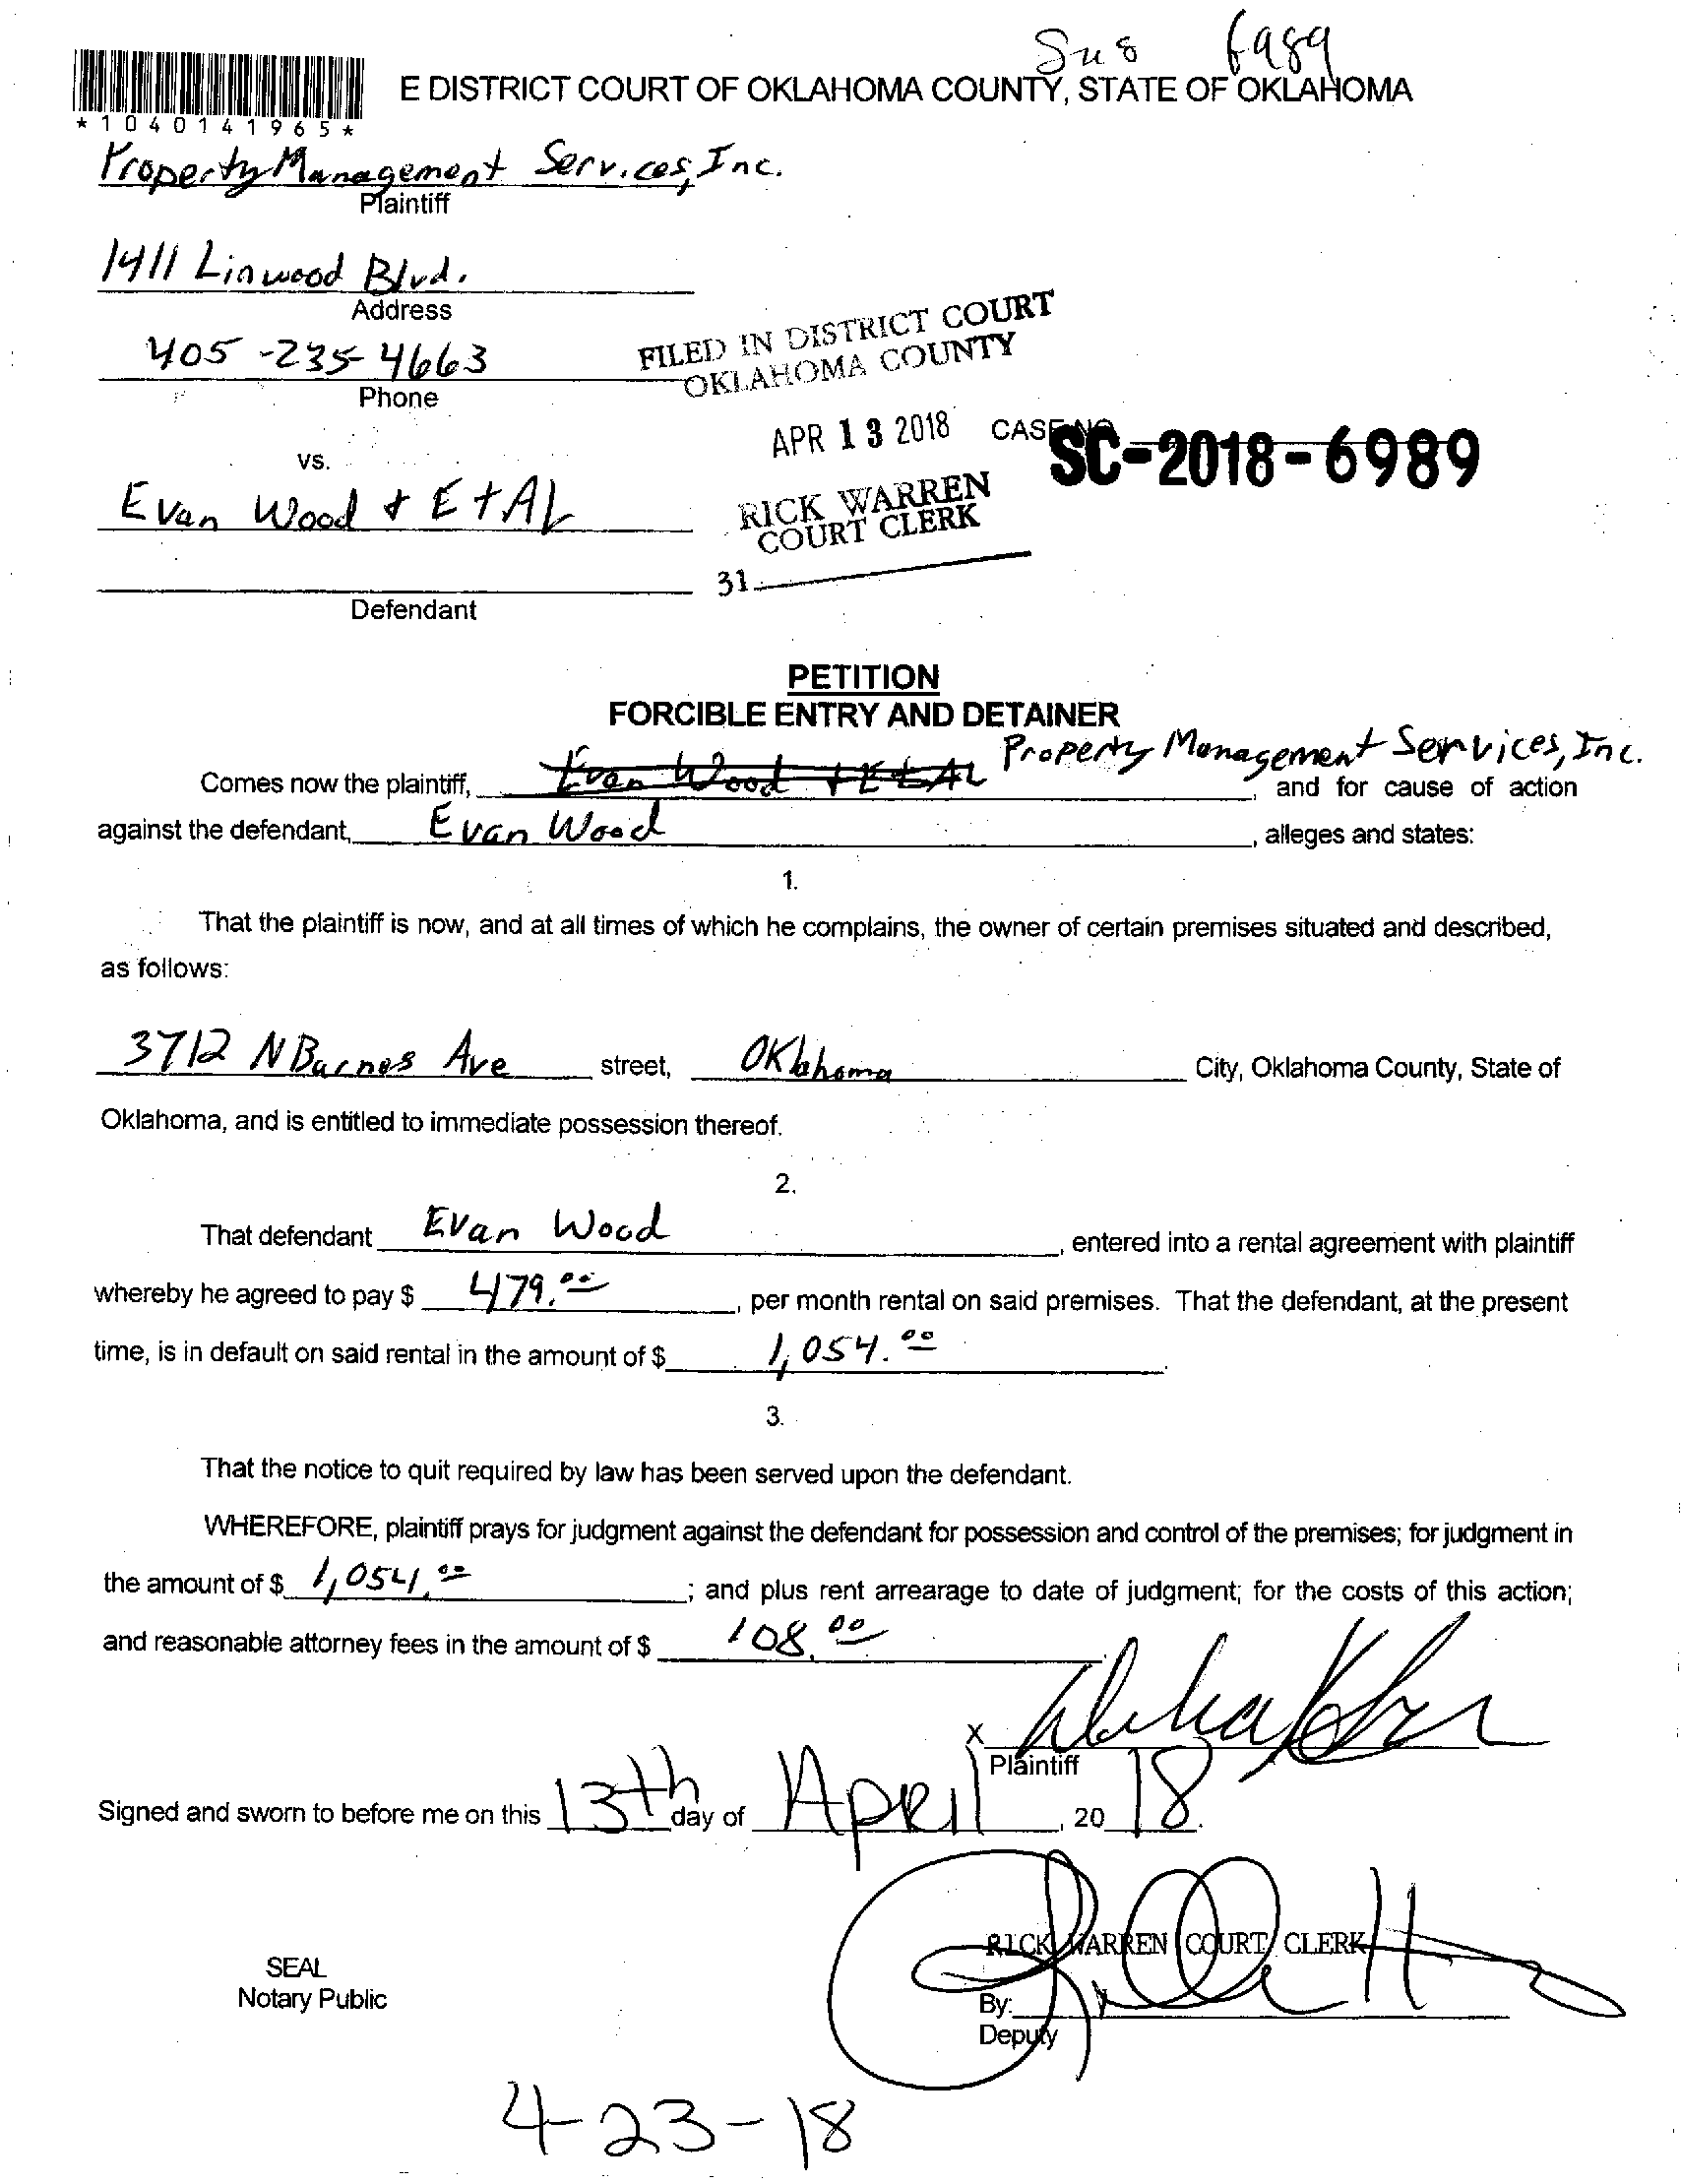 6989
E DISTRICT COURT OF OKLAHOMA COUNTY, STATE OF OKLAHOMA
*1040141965*
Property Management Services, Inc.
Plaintiff
1411 Linwood Blvd.
Address
405-235-4663
Phone
FILED IN DISTRICT COURT
OKLAHOMA COUNTY
APR 13 2018
CASE NO SC-2018-6989
vs.
Evan Wood & Et AL
RICK WARREN
COURT CLERK
31
Defendant
PETITION
FORCIBLE ENTRY AND DETAINER
Property Management Services, Inc.
Comes now the plaintiff, Evan Wood + Et AL, and for cause of action
against the defendant, Evan Wood, alleges and states:
1.
That the plaintiff is now, and at all times of which he complains, the owner of certain premises situated and described,
as follows:
3712 N Barnes Ave street, Oklahoma City, Oklahoma County, State of
Oklahoma, and is entitled to immediate possession thereof.
2.
That defendant Evan Wood, entered into a rental agreement with plaintiff
whereby he agreed to pay $ 479.00, per month rental on said premises. That the defendant, at the present
time, is in default on said rental in the amount of $ 1,054.00.
3.
That the notice to quit required by law has been served upon the defendant.
WHEREFORE, plaintiff prays for judgment against the defendant for possession and control of the premises; for judgment in
the amount of $ 1,054.00; and plus rent arrearage to date of judgment; for the costs of this action;
and reasonable attorney fees in the amount of $ 108.00.
X
Plaintiff
Signed and sworn to before me on this 13th day of April, 20 18.
RICK WARREN COURT CLERK
SEAL
Notary Public
By:
Deputy
4-23-18